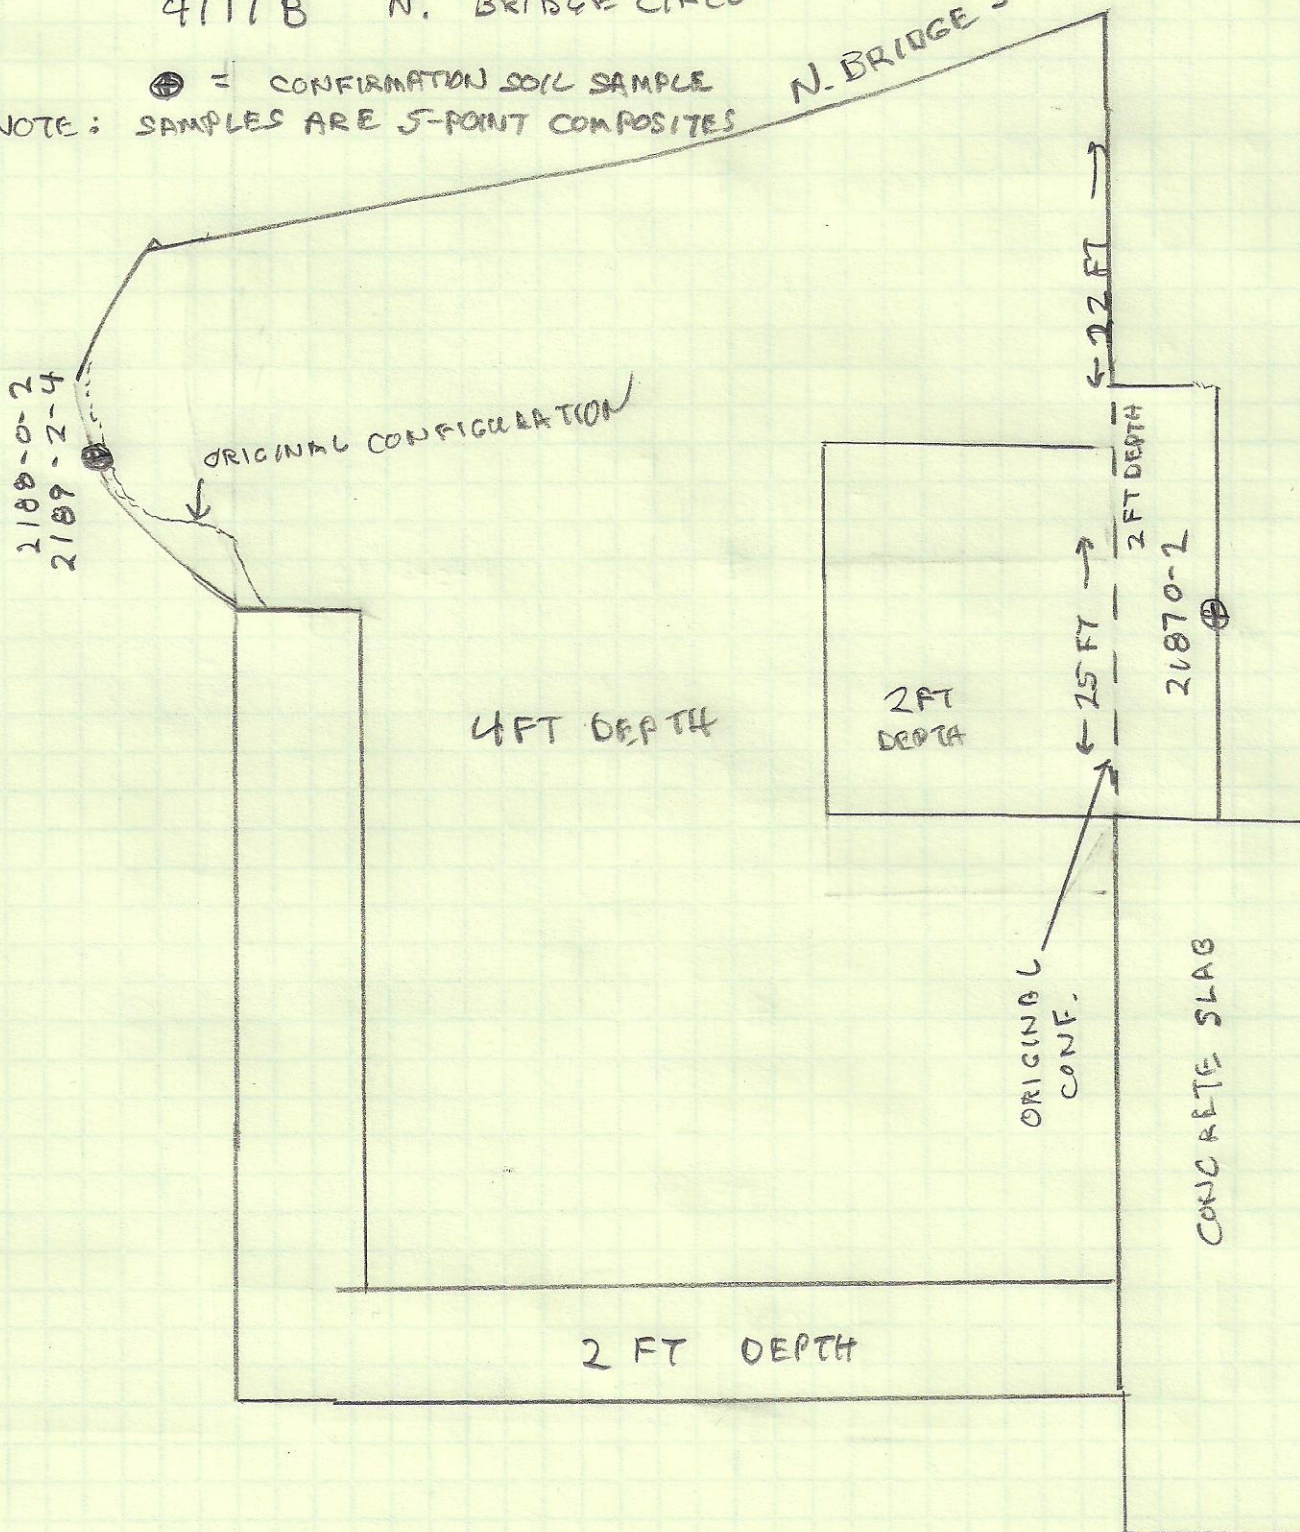 N. BRIDGE
= CONFIRMATION SOIL SAMPLE
NOTE: SAMPLES ARE 5-POINT COMPOSITES
N. BRIDGE
← 22 FT →
2188-0-2
2189-2-4
ORIGINAL CONFIGURATION
2 FT DEPTH
21870-2
← 25 FT →
2FT
DEPTH
4FT DEPTH
ORIGINAL
CONF.
CONCRETE SLAB
2 FT DEPTH